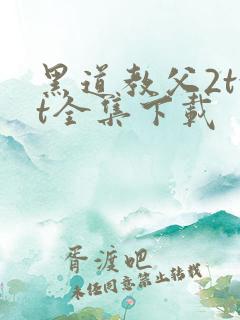 黑道教父2tx
t全集下载
胥渡吧
未经同意禁止转载